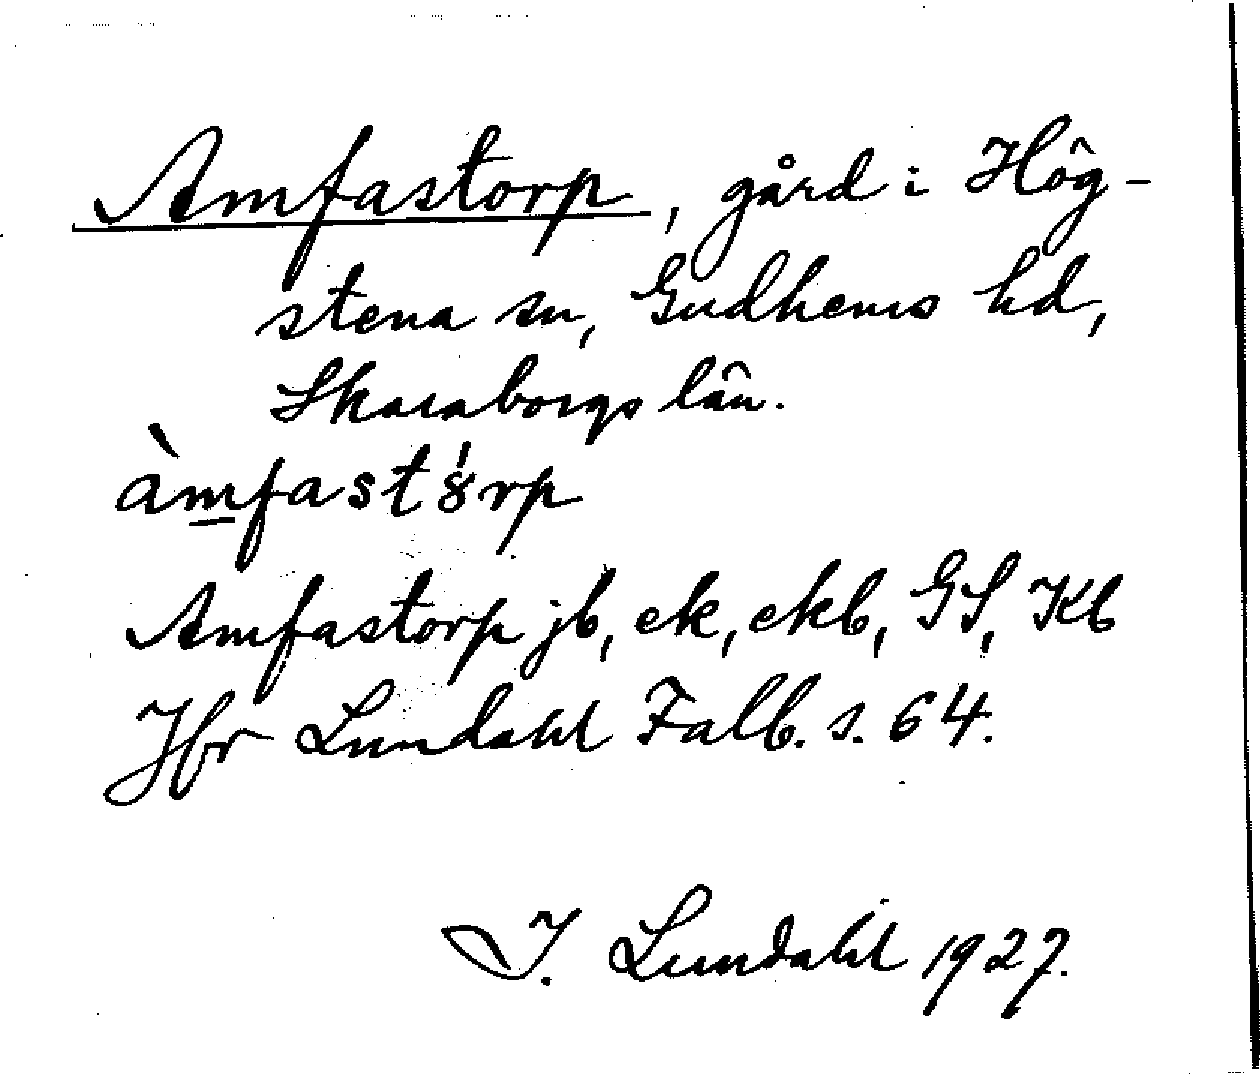 Amfastorp, gård i Hög-
stena sn, Gudhems hd,
Skaraborgs län.
àmfastȣ́rp
Amfastorp jb, ek, ekb, GS, Kb
Jfr Lundahl Falb. s. 64.
I. Lundahl 1927.